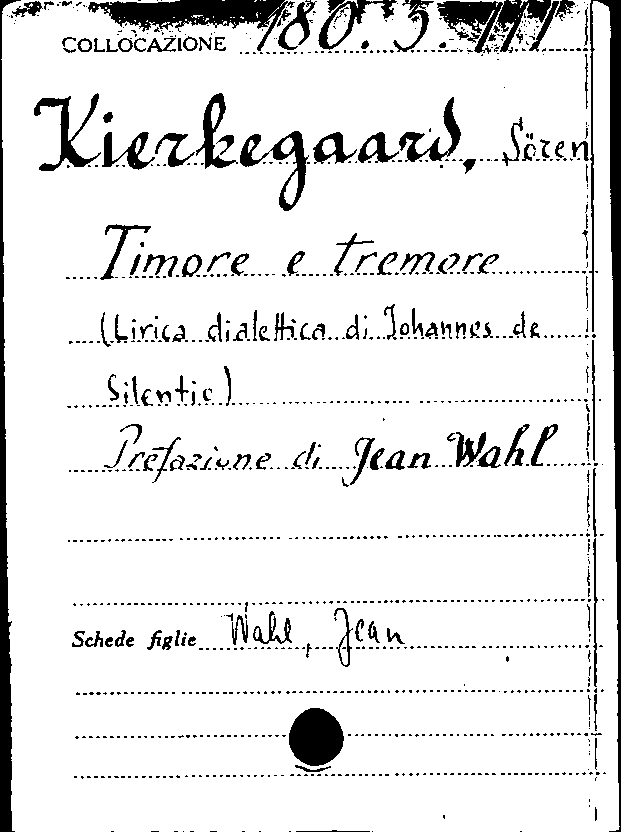 COLLOCAZIONE 180. 5. 111
Kierkegaard, Sören
Timore e tremore
(Lirica dialettica di Johannes de
Silentio)
Prefazione di Jean Wahl
Schede figlie Wahl, Jean